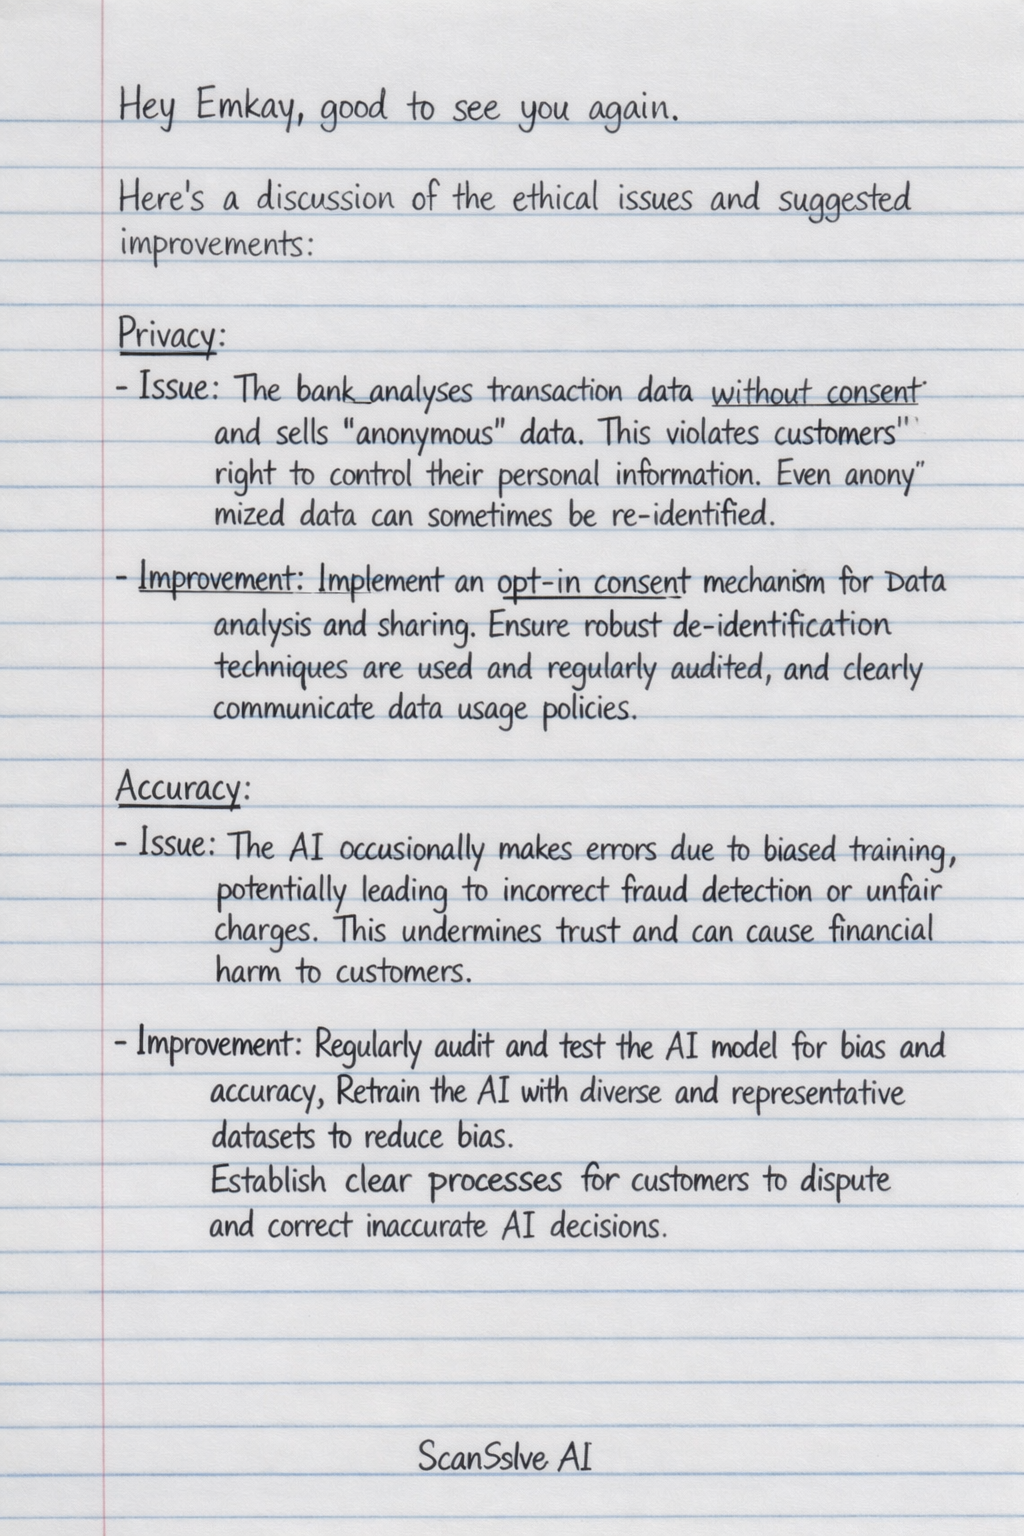 Hey Emkay, good to see you again.
Here's a discussion of the ethical issues and suggested
improvements:
Privacy:
- Issue: The bank analyses transaction data without consent
and sells "anonymous" data. This violates customers"
right to control their personal information. Even anony"
mized data can sometimes be re-identified.
- Improvement: Implement an opt-in consent mechanism for Data
analysis and sharing. Ensure robust de-identification
techniques are used and regularly audited, and clearly
communicate data usage policies.
Accuracy:
- Issue: The AI occusionally makes errors due to biased training,
potentially leading to incorrect fraud detection or unfair
charges. This undermines trust and can cause financial
harm to customers.
- Improvement: Regularly audit and test the AI model for bias and
accuracy, Retrain the AI with diverse and representative
datasets to reduce bias.
Establish clear processes for customers to dispute
and correct inaccurate AI decisions.
ScanSslve AI